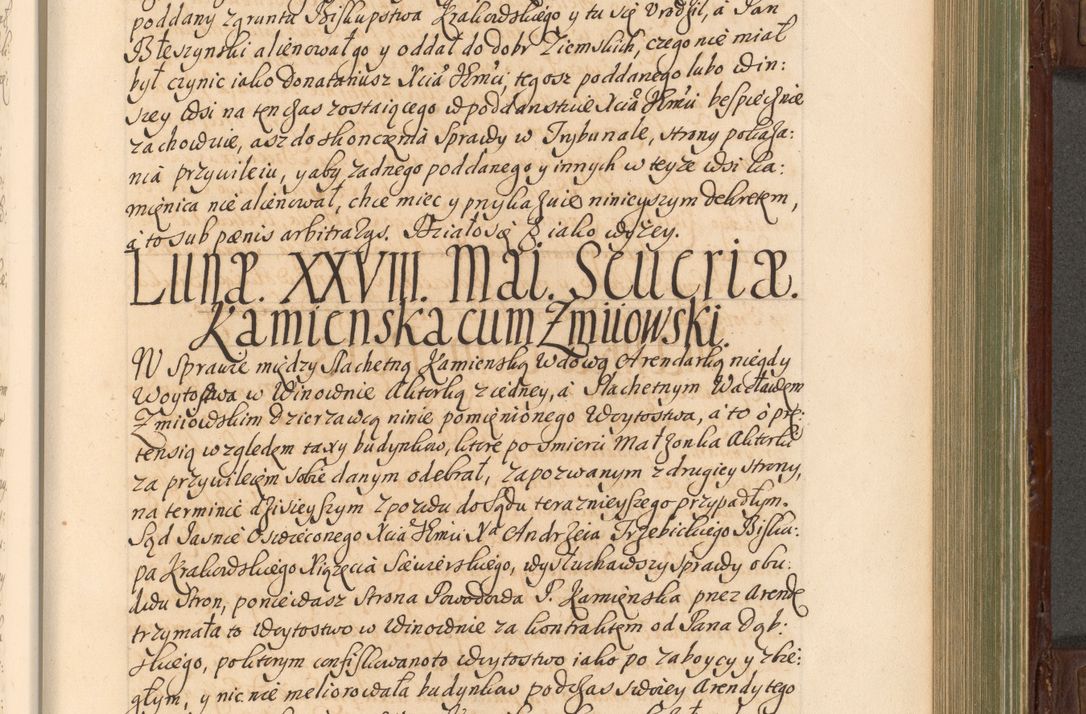 poddany z gruntu Biskupstwa Krakowskiego y tu się vrodził, a Pan
Błeszynski alienował go y oddał do dobr Ziemskich, czego nie miał
był czynic iako donatariusz Xcia Jmci, tegosz poddanego lubo w in:
szey wsi na ten czas zostaiącego w poddanstwie Xcia Jmci bespiecznie
zachowuie, asz do skonczenia Sprawy w Trybunale, strony pokaza:
nia przywileiu, y aby zadnego poddanego y innych w teyze wsi Ka:
mięnica nie alienował, chce miec y przykazuie ninieyszym dekretem,
a to sub pœnis arbitrarys. Działo się iako wyzey.
Lunæ. XXVIII. Mai. Sceueriæ.
Kamienska cum Zmiiowski.
W Sprawie między Slachetną Kamienską Wdową Arendarką niegdy
Woytostwa w Winownie Aktorką z iedney, a Slachetnym Wacławem
Zmiiowskim dzierzawcą ninie pomięnionego Woytostwa, a to o prę:
tensią względem taxy budynkow, ktore po smierci Małzonka Aktorki
za przywileiem sobie danym odebrał, zapozwanym z drugiey strony,
na terminie dzisieyszym z pozwu do Sądu teraznieyszego przypadłym.
Sąd Jasnie Oswieconego Xcia Jmci Xa Andrzeia Trzebickiego Bisku:
pa Krakowskiego Xiązęcia Siewierskiego, wysłuchawszy Sprawy obu:
dwu Stron, poniewasz Strona Powodowa P. Kamięnska przez Arendę
trzymała to Woytostwo w Winownie za kontraktem od Pana Dąb:
skiego, po ktorym confiskowano to woytostwo iako po zaboycy y zbie:
głym, y nic nie meliorowała budynkow podczas swoiey Arendy tego